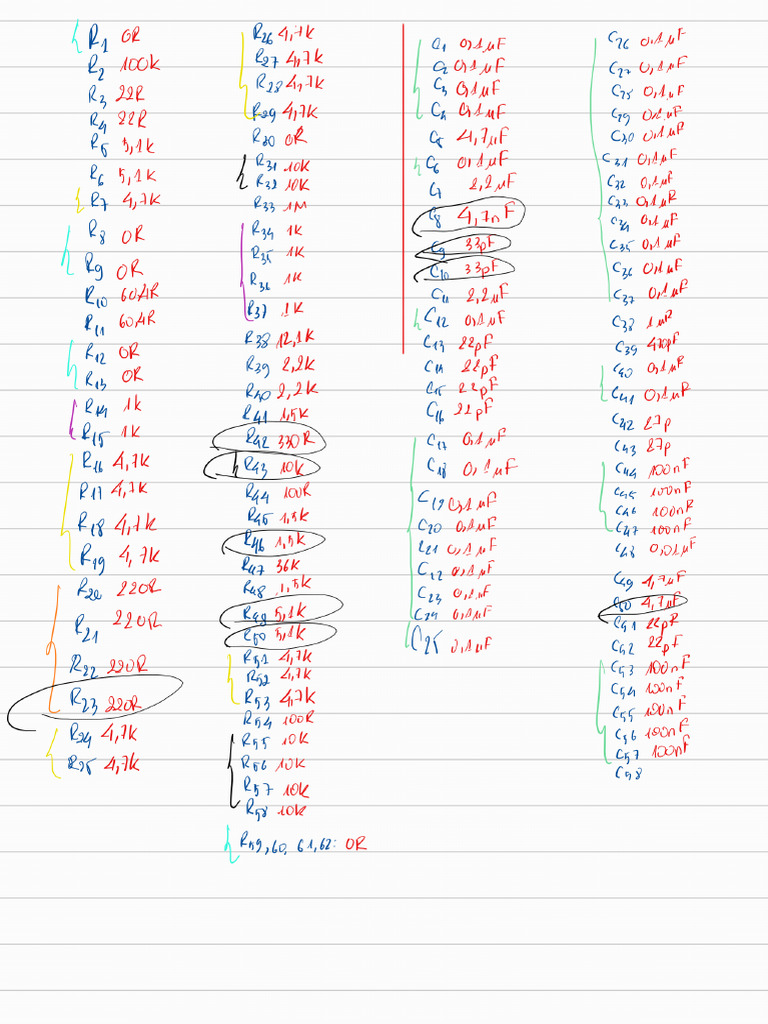 R1 0R
R2 100K
R3 22R
R4 22R
R5 5,1K
R6 5,1K
R7 4,7K
R8 0R
R9 0R
R10 60,4R
R11 60,4R
R12 0R
R13 0R
R14 1K
R15 1K
R16 4,7K
R17 4,7K
R18 4,7K
R19 4,7K
R20 220R
R21 220R
R22 220R
R23 220R
R24 4,7K
R25 4,7K
R26 4,7K
R27 4,7K
R28 4,7K
R29 4,7K
R30 0R
R31 10K
R32 10K
R33 1M
R34 1K
R35 1K
R36 1K
R37 1K
R38 12,1K
R39 2,2K
R40 2,2K
R41 1,5K
R42 330R
R43 10K
R44 100R
R45 1,5K
R46 1,5K
R47 36K
R48 1,5K
R49 5,1K
R50 5,1K
R51 4,7K
R52 4,7K
R53 4,7K
R54 100R
R55 10K
R56 10K
R57 10K
R58 10K
R59, 60, 61, 62: 0R
C1 0,1µF
C2 0,1µF
C3 0,1µF
C4 0,1µF
C5 4,7µF
C6 0,1µF
C7 2,2µF
C8 4,7nF
C9 33pF
C10 33pF
C11 2,2µF
C12 0,1µF
C13 22pF
C14 22pF
C15 22pF
C16 22pF
C17 0,1µF
C18 0,1µF
C19 0,1µF
C20 0,1µF
C21 0,1µF
C22 0,1µF
C23 0,1µF
C24 0,1µF
C25 0,1µF
C26 0,1µF
C27 0,1µF
C28 0,1µF
C29 0,1µF
C30 0,1µF
C31 0,1µF
C32 0,1µF
C33 0,1µF
C34 0,1µF
C35 0,1µF
C36 0,1µF
C37 0,1µF
C38 1µF
C39 470pF
C40 0,1µF
C41 0,1µF
C42 27p
C43 27p
C44 100nF
C45 100nF
C46 100nF
C47 100nF
C48 0,01µF
C49 4,7µF
C50 4,7µF
C51 22pF
C52 22pF
C53 100nF
C54 100nF
C55 100nF
C56 100nF
C57 100nF
C58